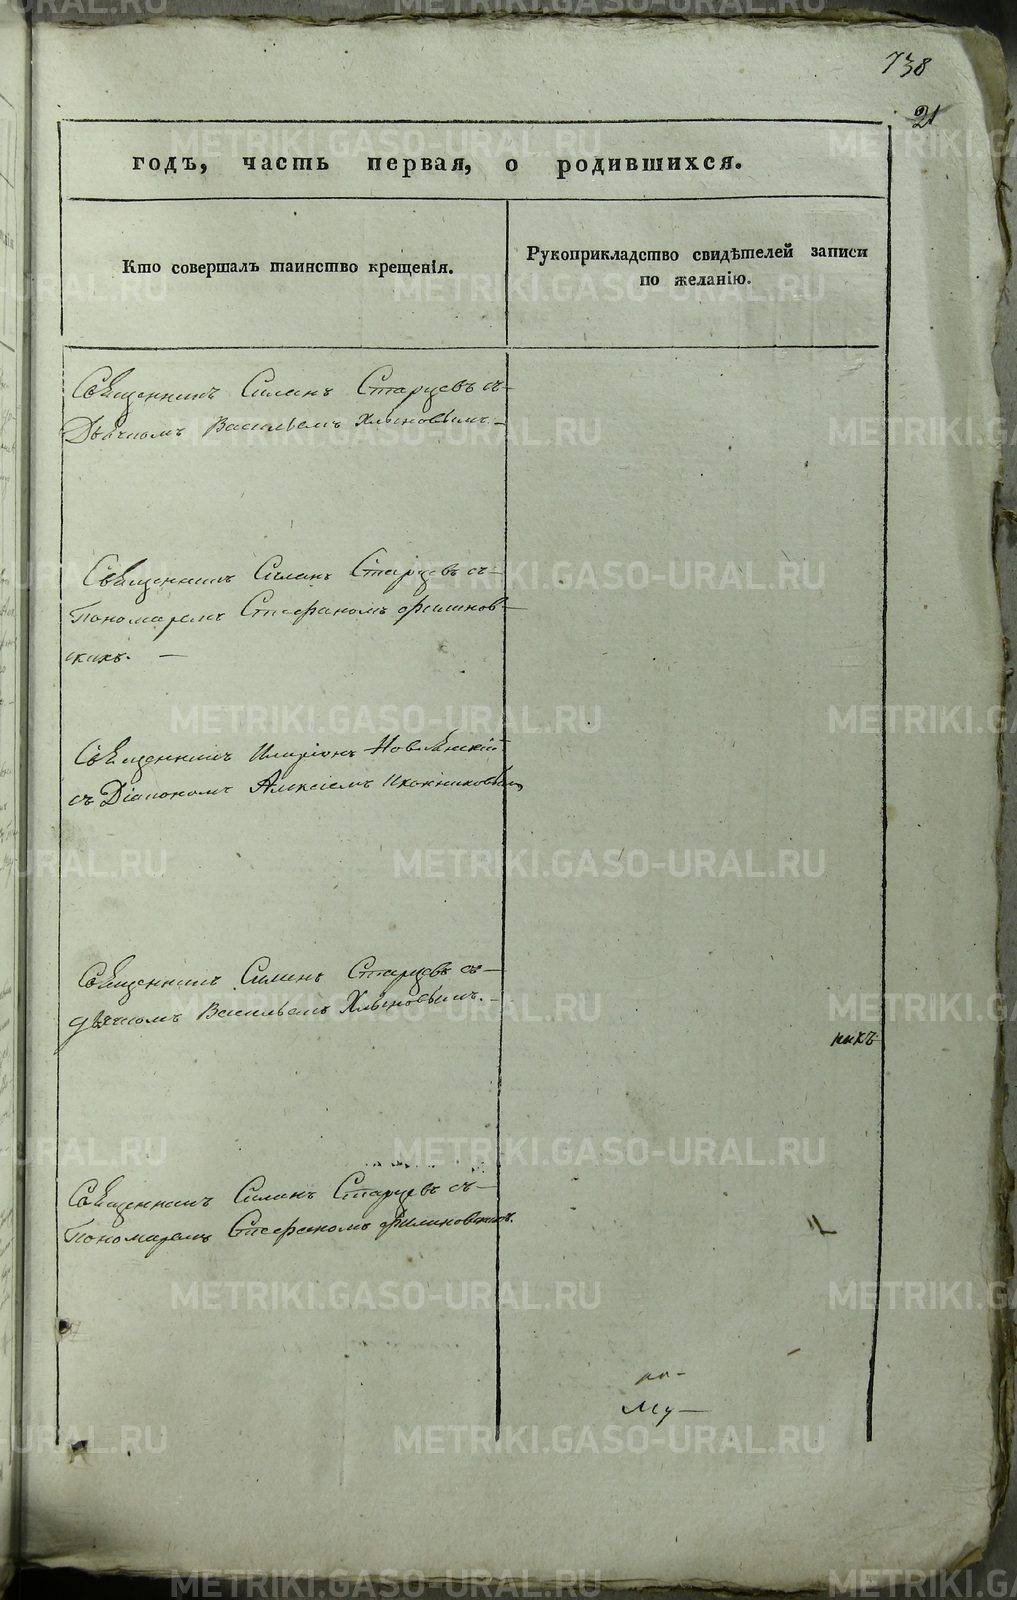 738
21
годъ, часть первая, о родившихся.
Кто совершалъ таинство крещенія.
Рукоприкладство свидѣтелей записи
по желанію.
Священникъ Силинъ Старцевъ съ
Дьячкомъ Васильемъ Хлыновымъ.
Священникъ Силинъ Старцевъ съ
Пономаремъ Стефаномъ Филинов-
скихъ. —
Священникъ Иларіонъ
съ Діакономъ Алексіемъ Иконниковымъ
Священникъ Силинъ Старцевъ съ
дьячкомъ Васильемъ Хлыновымъ.
Священникъ Силинъ Старцевъ съ
Пономаремъ Стефаномъ Филиновскихъ.
му —
METRIKI.GASO-URAL.RU